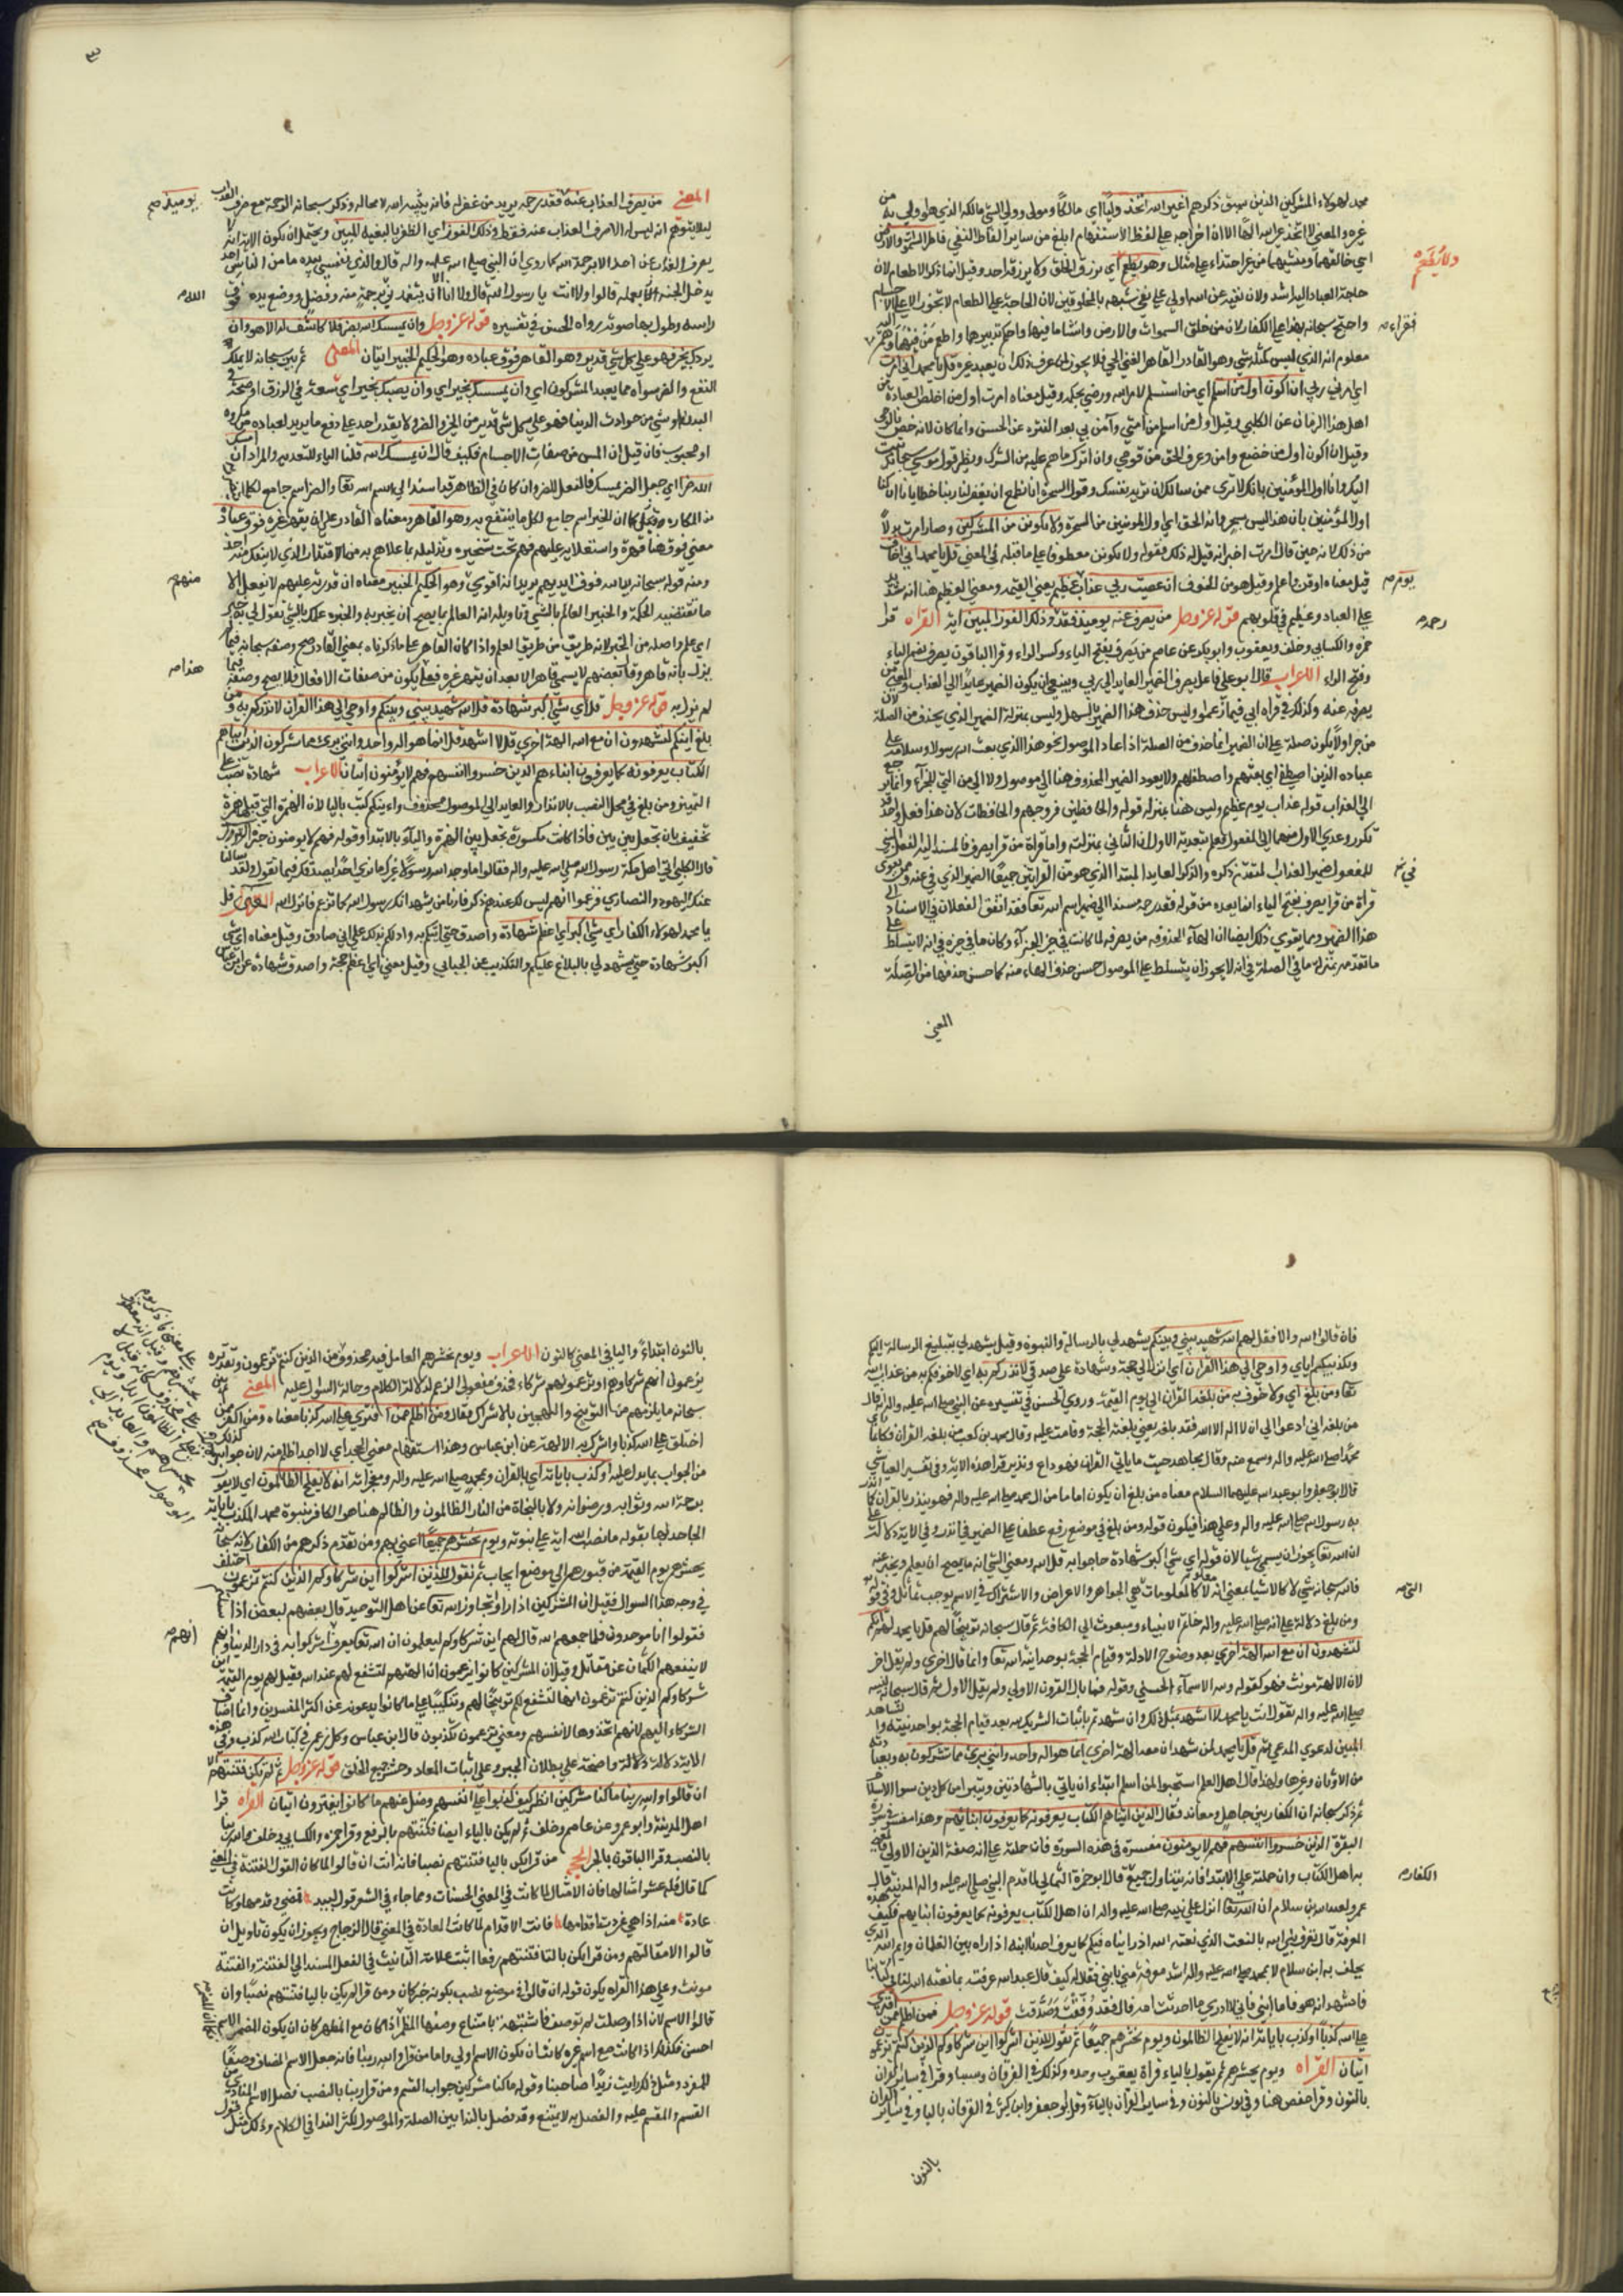 محمد لهولاء المشركين الذين سبق ذكرهم اغير الله اتخذ وليا اي مالكا ومولى وولي الشي مالكه الذي هو اولى به من
غيره والمعنى لا اتخذ غير الله الها الا ان اخراجه على لفظ الاستفهام ابلغ من ساير الفاظ النفي فاطر السموات والارض
اي خالقهما ومنشيهما من غير احتذاء على مثال وهو يطعم اي يرزق الخلق ولا يرزقه احد وقيل انما ذكر الاطعام لان
ولا يطعم
حاجة العباد اليه اشد ولان نفيه عن الله اولى على نفي شبهه بالمخلوقين لان الحاجة على الطعام لا تجوز الا على الاجسام
واحتج سبحانه بهذا على الكفار لان من خلق السموات والارض وانشا ما فيها واحكم تدبيرها واطعم من فيها وهم
فقراء
معلوم انه الذي ليس كمثله شي وهو القادر القاهر الغني الحي فلا يجوز لمن عرف ذلك ان يعبد غيره قل يا محمد اني امرت
اي امرني ربي ان اكون اول من اسلم اي من استسلم لامر الله ورضي بحكمه وقيل معناه امرت اول من اخلص العبادة من
اهل هذا الزمان عن الكلبي وقيل اول من اسلم من امتي وآمن بي بعد الفترة عن الحسن وانما كان لانه خص بالوحي
وقيل ان اكون اول من خضع وامن وعرف الحق من قومي وان اترك ما هم عليه من الشرك ونظير قول موسى سبحانك تبت
اليك وانا اول المؤمنين بانك لا ترى ممن سالك ان تريه نفسك وقول السحرة انا نطمع ان يغفر لنا ربنا خطايانا ان كنا
اول المؤمنين بان هذا ليس بسحر وانه الحق اي اول المومنين من السحرة ولا تكونن من المشركين وصار امرت بدلا
من ذلك لانه حين قال امرت اخبر انه قيل له ذلك فقوله ولا تكونن معطوف على ما قبله في المعنى قل يا محمد اني اخاف
قيل معناه اوقن واعلم وقيل هو من الخوف ان عصيت ربي عذاب يوم عظيم يعني القيمة ومعنى العظيم هنا انه شديد
يوم
على العباد وعظيم في قلوبهم قوله عز وجل من يصرف عنه يوميذ فقد وذلك الفوز المبين آية القراة قرا
رحمه
حمزة والكسايي وخلف ويعقوب وابو بكر عن عاصم من يَصرف بفتح الياء وكسر الراء وقرا الباقون يصرف بضم الياء
وفتح الراء الاعراب قال ابو علي فاعل يصرف الضمير العايد الى ربي وينبغي ان يكون الضمير عايدا الى العذاب والمعنى من
يصرفه عنه وكذلك في قراه ابي فيما زعموا وليس حذف هذا الضمير بالسهل وليس بمنزلة الضمير الذي يحذف من الصلة لان
من جزاء ولا يكون صلة على ان الضمير انما حذف من الصلة اذا عاد الى الموصول نحو هذا الذي بعث الله رسولا وسلام على
عباده الذين اصطفى اي بعثهم واصطفاهم ولا يعود الضمير المحذوف هنا الى موصول ولا الى من التي للجزاء وانما يرجع
الى العذاب قوله عذاب يوم عظيم وليس هنا بمنزلة قوله والحافظين فروجهم والحافظات لان هذا فعل واحد قد
تكرر وعدي الاول منهما الى المفعول فعلم بتعدية الاول ان الثاني بمنزلته واما قراة من قرا يصرف فالمسند اليه الفعل المبني
للمفعول ضمير العذاب لمتقدم ذكره والذكر العايد الى المبتدا الذي هو من القرائتين جميعا الضمير الذي في عنه ومما يقوى
في
قراة من قرا يصرف بفتح الياء ان ما بعده من قوله فقد رحمه مسندا الى ضمير اسم الله تعا فقد اتفق الفعلان في الاسناد الى
هذا الضمير ومما يقوى ذلك ايضا ان الهآء المحذوفة من يصرفه لما كانت في حيز الجزآء وكان ما في حيزه في انه لا يتسلط على
ما تقدمه بمنزلة ما في الصلة في انه لا يجوز ان يتسلط على الموصول حسن حذف الهاء منه كما حسن حذفها من الصّلة
المعنى
٣
المعنى من يصرف العذاب عنه فقد رحمه يريد من غفر له فانه يثيبه الله لا محالة وذكر سبحانه الرحمة مع صرف العذاب
يوميذ صح
ليلا يتوهم انه ليس له الا صرف العذاب عنه فقط وذلك الفوز اي الظفر بالبغية المبين ويحتمل ان يكون الاية انه لا
يصرف العذاب عن احد الا برحمة الله كما روي ان النبي صلى الله عليه واله قال والذي نفسي بيده ما من الناس احد
يدخل الجنة بعمله قالوا ولا انت يا رسول الله قال ولا انا الا ان يتغمدني برحمة منه وفضل ووضع يده فوق
الله
راسه وطول بها صوته رواه الحسن في تفسيره قوله عز وجل وان يمسسك الله بضر فلا كاشف له الا هو وان
يردك بخير فهو على كل شي قدير وهو القاهر فوق عباده وهو الحكيم الخبير ايتان المعنى ثم بين سبحانه لا يملك
النفع والضر سواه مما يعبد المشركون اي وان يمسسك بخير اي وان يصبك بخير اي سعة في الرزق او صحة في
البدن او شي من حوادث الدنيا فهو على كل شي قدير من الخير والضر ولا يقدر احد على دفع ما يريد لعباده من مكروه
او محبوب فان قيل ان المس من صفات الاجسام فكيف قال ان يمسسك الله قلنا الباء للتعدية والمراد ان امسك
الله ضرا اي جعل الضر يمسك فالفعل للضر وان كان في الظاهر قد اسند الى اسم الله تعا والضر اسم جامع لكل ما يتضرر
من المكاره وقيل كما ان للخير اسم جامع لكل ما ينتفع به وهو القاهر ومعناه القادر على ان يقهر غيره فوق عباده
معنى فوق هنا قهره واستعلايه عليهم فهم تحت تسخيره وتذليله بما علاهم به من الاقتدار الذي لا ينفك منه احد
ومنه قوله سبحانه يد الله فوق ايديهم يريد انه اقوى وهو الحكيم الخبير معناه ان قدرته عليهم لا يفعل الا
منهم
ما تقتضيه الحكمة والخبير العالم بالشي وتاويله انه العالم بما يصح ان يخبر به والخبره علمك بالشي تقول لي به خبر
اي علم واصله من الخبر لانه طريق من طريق العلم واذا كان القاهر على ما ذكرناه بمعنى القادر صح وصفه سبحانه فيما لم
يزل بانه قاهر وقال بعضهم لا يسمى قاهرا الا بعد ان يقهر غيره فعلى يكون من صفات الافعال فلا يصح وصفه فيما
هذا
لم يزل به قوله عز وجل قل اي شي اكبر شهادة قل الله شهيد بيني وبينكم واوحي الى هذا القران لانذركم به ومن
بلغ اينكم لتشهدون ان مع الله الهة اخرى قل لا اشهد قل انما هو اله واحد وانني بريء مما تشركون الذين اتيناهم
الكتاب يعرفونه كما يعرفون ابناءهم الذين خسروا انفسهم فهم لا يؤمنون ايتان الاعراب شهادة نصب على
التمييز ومن بلغ في محل النصب بالانذار والعايد الى الموصول محذوف واءينكم كتب باليا لان الهمزة التي قبلها همزة
تخفيف بان تجعل بين بين فاذا كانت مكسورة تجعل بين الهمزة والياء بالابتدا وقوله فهم لا يومنون خبره النزول
قال الكلبي اتى اهل مكة رسول الله صلى الله عليه واله فقالوا ما وجد الله رسولا غيرك ما نرى احدا يصدقك فيما تقول ولقد سالنا
عنك اليهود والنصارى فزعموا انه ليس لك عندهم ذكر فارنا من يشهد انك رسول الله كما تزعم فانزل الله المعنى قل
يا محمد لهولاء الكفار اي شي اكبر اي اعظم شهادة واصدق حتى اتيكم به وادلكم بذلك على اني صادق وقيل معناه اي شي
اكبر شهادة حتى يشهد لي بالبلاغ عليكم والتكذيب عن الجبايي وقيل معنى اي اعظم حجة واصدق شهادة عن ابن عباس
فان قالوا الله والا فقل لهم الله شهيد بيني وبينكم يشهد لي بالرسالة والنبوه وقيل يشهد لي بتبليغ الرسالة اليكم
وتكذيبكم اياي واوحي الى هذا القران اي انزل الى حجة وشهادة على صدقي لانذركم به اي لاخوفكم به من عذاب الله
تعا ومن بلغ اي ولاخوف به من بلغه القران الى يوم القيمة وروي الحسن في تفسيره عن النبي صلى الله عليه واله انه قال
من بلغه اني ادعو الى ان لا اله الا الله فقد بلغه يعني بلغته الحجة وقامت عليه وقال محمد بن كعب من بلغه القران فكانما راى
محمدا صلى الله عليه واله وسمع منه وقال مجاهد حيث ما ياتي القران فهو داع ونذير وقرا هذه الاية وفي تفسير العياشي
قال ابو جعفر وابو عبد الله عليهما السلام معناه من بلغ ان يكون اماما من ال محمد صلى الله عليه واله فهو ينذر بالقران كما انذر
به رسول الله صلى الله عليه واله وعلى هذا فيكون قوله ومن بلغ في موضع رفع عطفا على الضمير في انذر وفي الاية دلالة على
ان الله تعا يجوز ان يسمى شيا لان قوله اي شي اكبر شهادة جاء جوابه قل الله ومعنى الشي انه ما يصح ان يعلم ويخبر عنه
فالله سبحانه شي لا كالاشيا بمعنى انه معلوم لا كالمعلومات هي الجواهر والاعراض والاشتراك في الاسم يوجب تماثل وفي قوله
التي
ومن بلغ دلالة على انه صلى الله عليه واله خاتم الانبياء ومبعوث الى الكافة ثم قال سبحانه توبيخا لهم قل يا محمد لهم ائنكم
لتشهدون ان مع الله الهة اخرى بعد وضوح الادلة وقيام الحجة بوحدانية الله تعا وانما قال اخرى ولم يقل اخر
لان الالهة مونث فهو كقوله ولله الاسمآء الحسنى وقوله فما بال القرون الاولى ولم يقل الاول ثم قال سبحانه لنبيه
صلى الله عليه واله بقوله انت يا محمد لا اشهد بمثل ذلك وان شهدتم باثبات الشريك لله بعد قيام الحجة بواحدنيته والشاهد
المبين لدعوى المدعي ثم قل يا محمد لمن شهد ان معه الهة اخرى انما هو اله واحد وانني بريء مما تشركون به وبعبادته
من الاوثان وغيرها ولهذا قال اهل العلم استحبوا لمن اسلم ابتداء ان ياتي بالشهادتين ويتبرا من كل دين سوا الاسلام
ثم ذكر سبحانه ان الكفار بين جاهل ومعاند فقال الذين اتيناهم الكتاب يعرفونه كما يعرفون ابنائهم وهذا مفسر في سورة
البقرة الذين خسروا انفسهم فهم لا يومنون مفسرة في هذه السورة فان حملته على انه صفة الذين الاولى فالمعني
به اهل الكتاب وان حملته على الابتدا فانه يتناول جميع قال ابو حمزة الثمالي لما قدم النبي صلى الله عليه واله المدينة قال
الكفار
عمر لعبد الله بن سلام ان الله تعا انزل على نبيه صلى الله عليه واله ان اهل الكتاب يعرفونه كما يعرفون ابنايهم فكيف هذه
المعرفة قال نعرف نبي الله بالنعت الذي نعته الله اذا رايناه فيكم كما يعرف احدنا ابنه اذا راه بين الغلمان وايم الله الذي
يحلف به ابن سلام لانا بمحمد صلى الله عليه واله اشد معرفة مني بابني فقال له كيف قال عبد الله عرفته بما نعته الله لنا في كتابنا
فاشهد انه هو فاما ابني فاني لا ادري ما احدثت امه قال فقد وُفِّقْتَ وصدقت قوله عز وجل فمن اظلم ممن افترى
على الله كذبا او كذب باياته انه لا يفلح الظالمون ويوم نحشرهم جميعا ثم نقول للذين اشركوا اين شركاوكم الذين كنتم تزعمون
ايتان القراه ويوم يحشرهم ثم يقول بالياء قراة يعقوب وحده وكذلك في الفرقان وسبا وقرا في ساير القران
بالنون وقرا حفص هنا وفي يونس بالنون وفي ساير القران باليآء وقرا ابو جعفر وابن كثير في الفرقان باليا وفي ساير القران
بالنون
بالنون ابتداءً واليا في المعنى كالنون الاعراب ويوم نحشرهم العامل فيه محذوف من الذين كنتم تزعمون وتقديره
تزعمون انهم شركاوهم او تزعمونهم شركاء فحذف مفعولي الزعم لدلالة الكلام وحالة السوال عليه المعنى ثم بين
سبحانه ما يلزمهم من التوبيخ والتهجين بالاشراك فقال ومن اظلم ممن افترى على الله كذبا معناه ومن اكفر ممن
اختلق على الله كذبا واشرك به الالهة عن ابن عباس وهذا استفهام معنى الجحد اي لا احد اظلم منه لان جوابه كذلك
من الجواب بما يدل عليه او كذب باياته اي بالقران وبمحمد صلى الله عليه واله ومعجزاته انه لا يفلح الظالمون اي لا يفوز
برحمة الله وثوابه ورضوانه ولا بالنجاة من النار الظالمون والظالم هنا هو الكافر بنبوة محمد المكذب باياته
الجاحد لها بقوله ما نصب الله اية على نبوته ويوم نحشرهم جميعا اعني بهم ومن تقدم ذكرهم من الكفار لانه سبحانه
يحشرهم يوم القيمة من قبورهم الى موضع ايجاب ثم نقول للذين اشركوا اين شركاوكم الذين كنتم تزعمون اختلف
في وجه هذا السوال فقيل ان المشركين اذا راوا تجاوز الله تعا عن اهل التوحيد قال بعضهم لبعض اذا سيلتم
فقولوا انا موحدون فلما جمعهم الله قال لهم اين شركاوكم ليعلمون ان الله تعا يعرف اشركوا به في دار الدنيا وانه
انهم
لا ينفعهم الكتمان عن مقاتل وقيل ان المشركين كانوا يزعمون ان الهتهم لتشفع لهم عند الله فقيل لهم يوم القيمة اين
شركاوكم الذين كنتم تزعمون انها تشفع لكم توبيخا لهم وتبكيتا على ما كانوا يدعونه عن اكثر المفسرين وانما اضاف
الشركاء اليهم لانهم اتخذوها لانفسهم ومعنى تزعمون تكذبون قال ابن عباس وكل زعم في كتاب الله كذب وفي هذه
الاية دلالة واضحة على بطلان الجبر وعلى اثبات المعاد وحشر جميع الخلق قوله عز وجل ثم لم تكن فتنتهم الا
ان قالوا والله ربنا ما كنا مشركين انظر كيف كذبوا على انفسهم وضل عنهم ما كانوا يفترون ايتان القراه قرا
اهل المدينة وابو عمرو وعن عاصم وخلف ثم لم تكن بالتاء ايضا فتنتهم بالرفع وقرا حمزة والكسايي وخلف والله ربنا
بالنصب وقرا الباقون بالجر الحجة من قرا تكن باليا فتنتهم نصبا فانه انث ان قالوا لما كان القول الفتنة في المعنى
كما قال فله عشر امثالها فان الامثال لما كانت في المعنى الحسنات ومما جاء في الشعر قول لبيد فمضى وقدمها وكانت
عادة منه اذا هي عردت اقدامها فانث الاقدام لما كانت العادة في المعنى قال الزجاج ويجوز ان يكون تاويل ان
قالوا الا مقالتهم ومن قرا تكن بالتا فتنتهم رفعا اثبت علامة التانيث في الفعل المسند الى الفتنة والفتنة
مونث وعلى هذا القراه يكون قوله ان قالوا في موضع نصب بكونه خبر كان ومن قرا لم يكن باليا فتنتهم نصبا وان
قالوا الاسم لان اذا وصلت لم توصف فاشبهت بامتناع وصفها المضمر اذا كان مع المظهر كان ان يكون المضمر الاسم
احسن فكذلك اذا كانت مع اسم غيره كانت ان يكون الاسم اولى واما من قرا والله ربنا فانه جعل الاسم المضاف وصفا
للمفرد ومثل ذلك رايت زيدا صاحبنا وقوله ما كنا مشركين جواب القسم ومن قرا ربنا بالنصب فصل الاسم المنادى بين
القسم والمقسم عليه والفصل به لا يمتنع وقد فصل بالندا بين الصلة والموصول لكثرة الندا في الكلام وذلك مثل قول